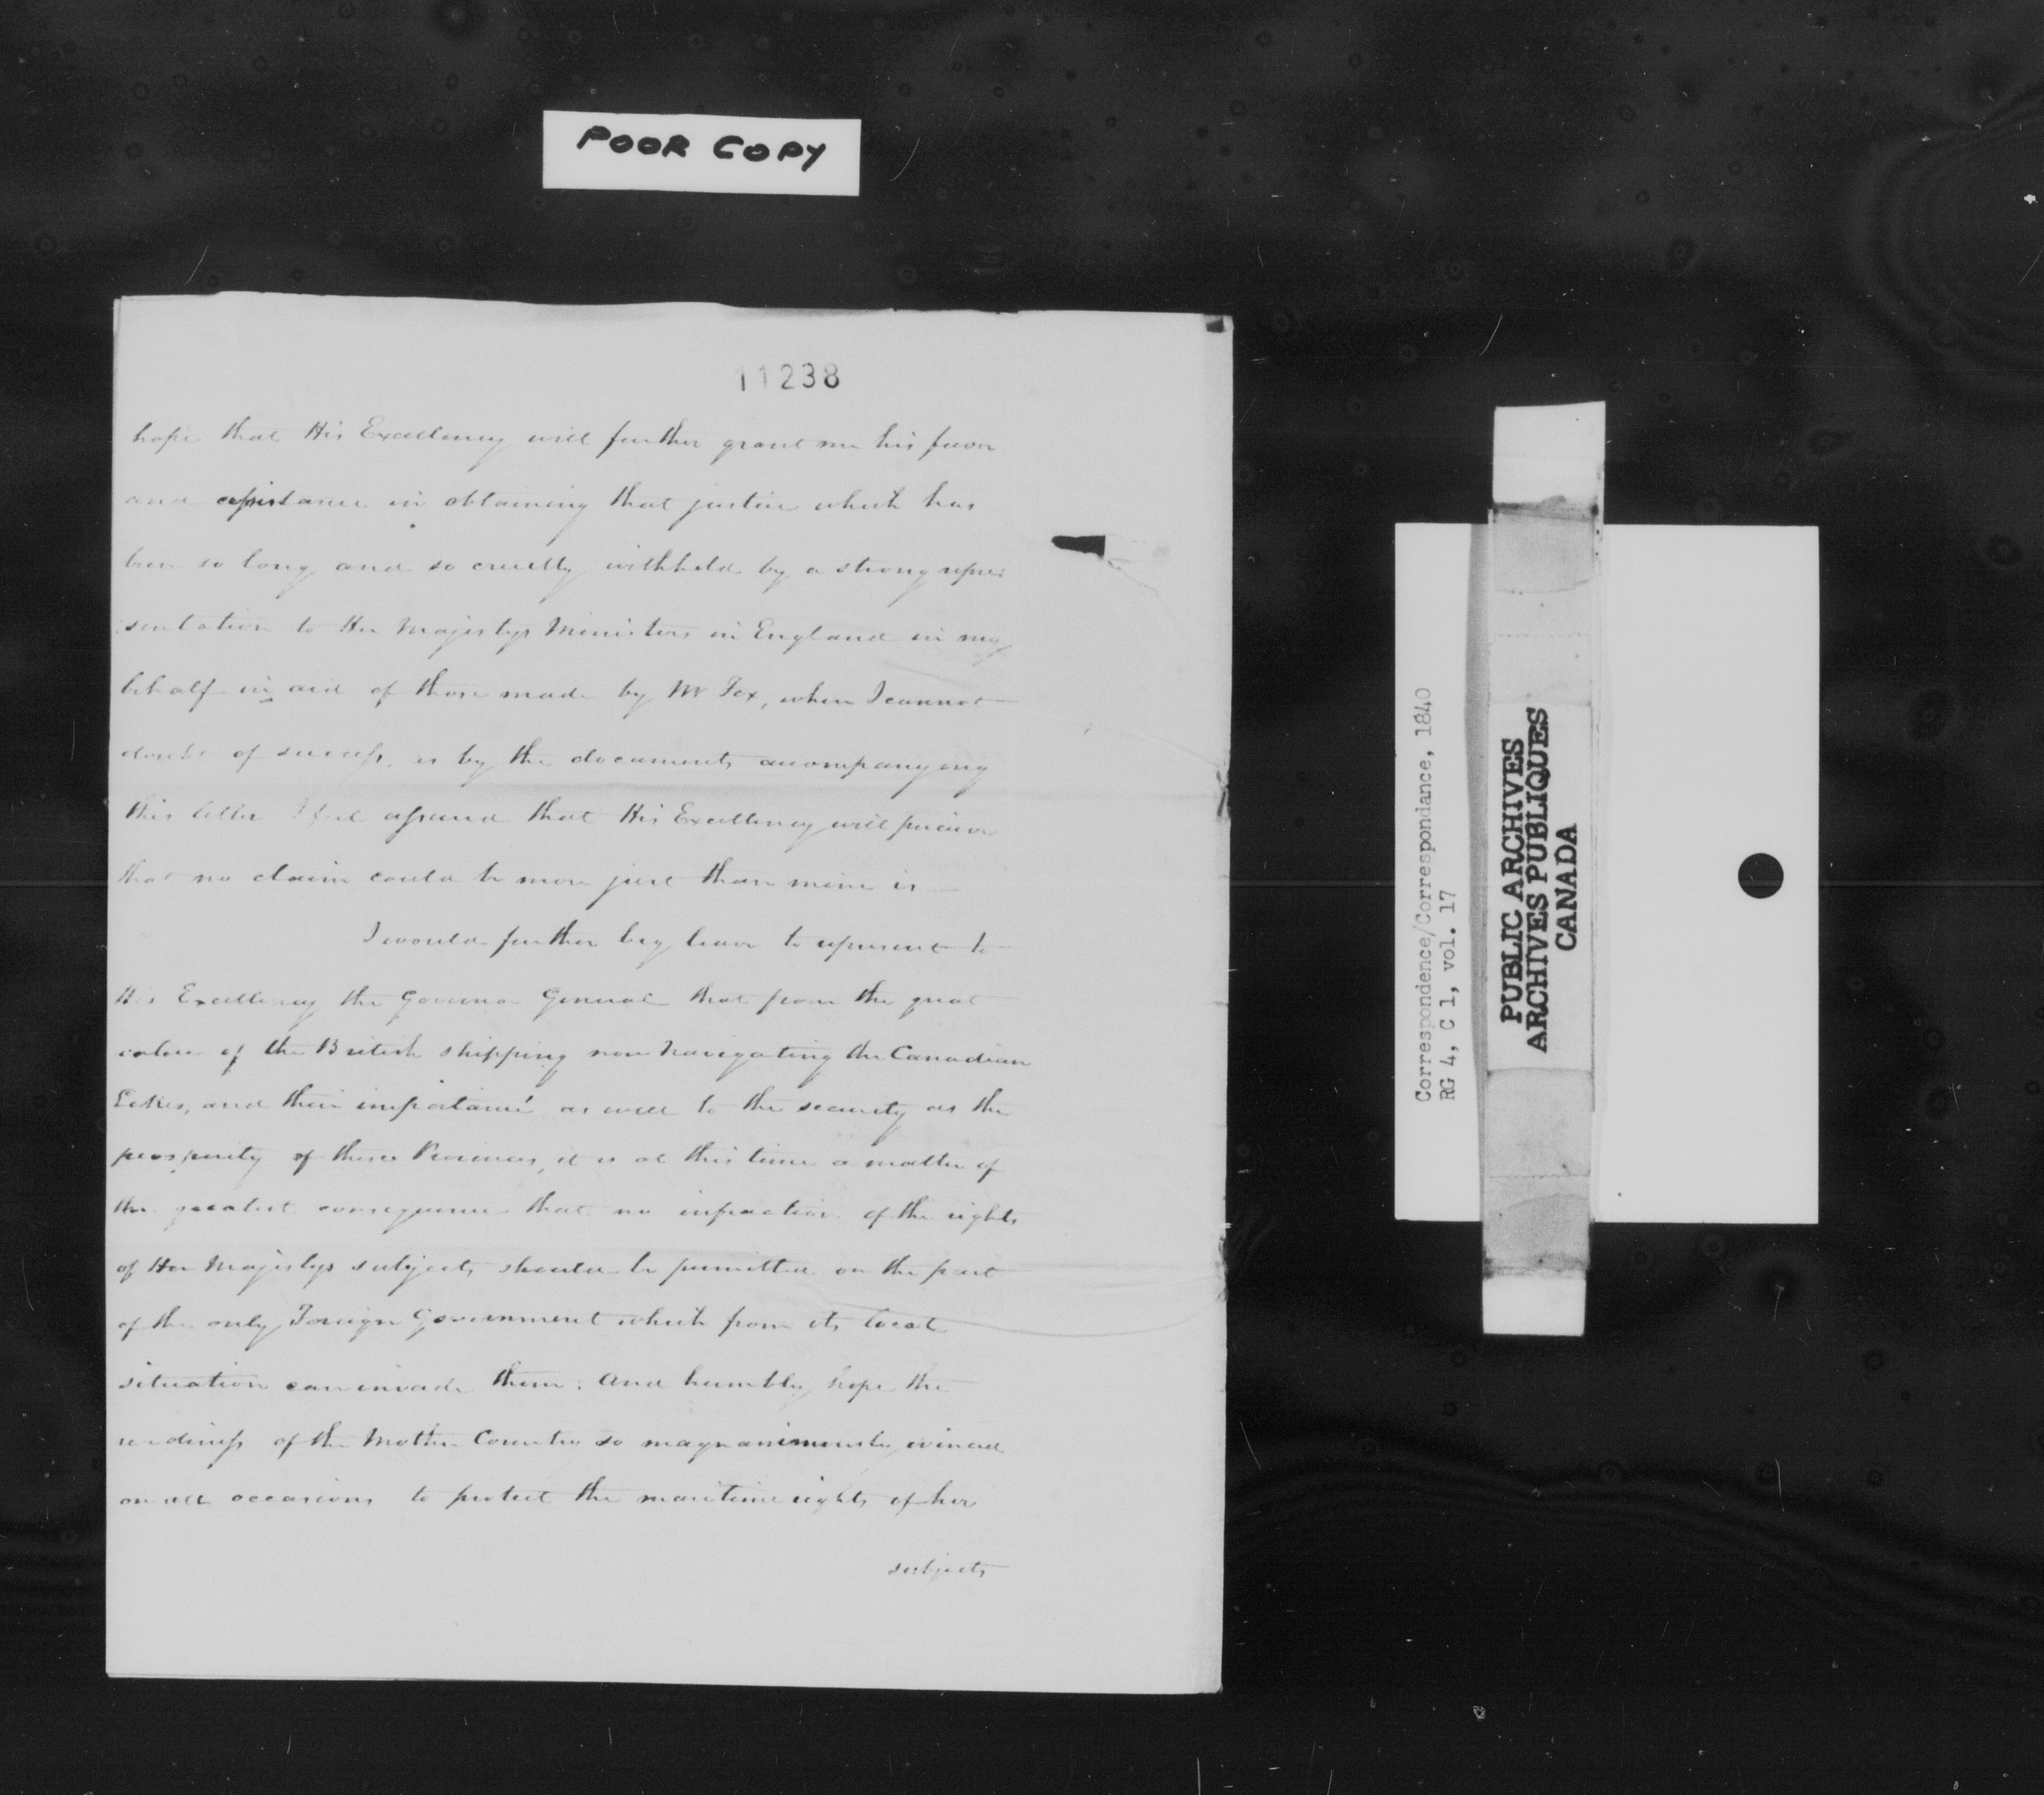 POOR COPY
11238
hope that His Excellency will further grant me his favor
and assistance in obtaining that justice which has
been so long and so cruelly withheld by a strong repre-
sentation to Her Majestys Ministers in England in my
behalf in aid of those made by Mr Fox, when I cannot
doubt of success, as by the documents accompanying
this letter I feel assured that His Excellency will perceive
that no claim could be more just than mine is
I would further beg leave to represent to
His Excellency the Governor General that from the great
value of the British shipping now navigating the Canadian
Lakes, and their importance as well to the security as the
prosperity of these Provinces, it is at this time a matter of
the greatest consequence that no infraction of the rights
of Her Majestys subjects should be permitted on the part
of the only Foreign Government which from its local
situation can invade them: And humbly hope the
readiness of the Mother Country so magnanimously evinced
on all occasions to protect the maritime rights of her
subjects
Correspondence/Correspondance, 1840
RG 4, C 1, vol. 17
PUBLIC ARCHIVES
ARCHIVES PUBLIQUES
CANADA